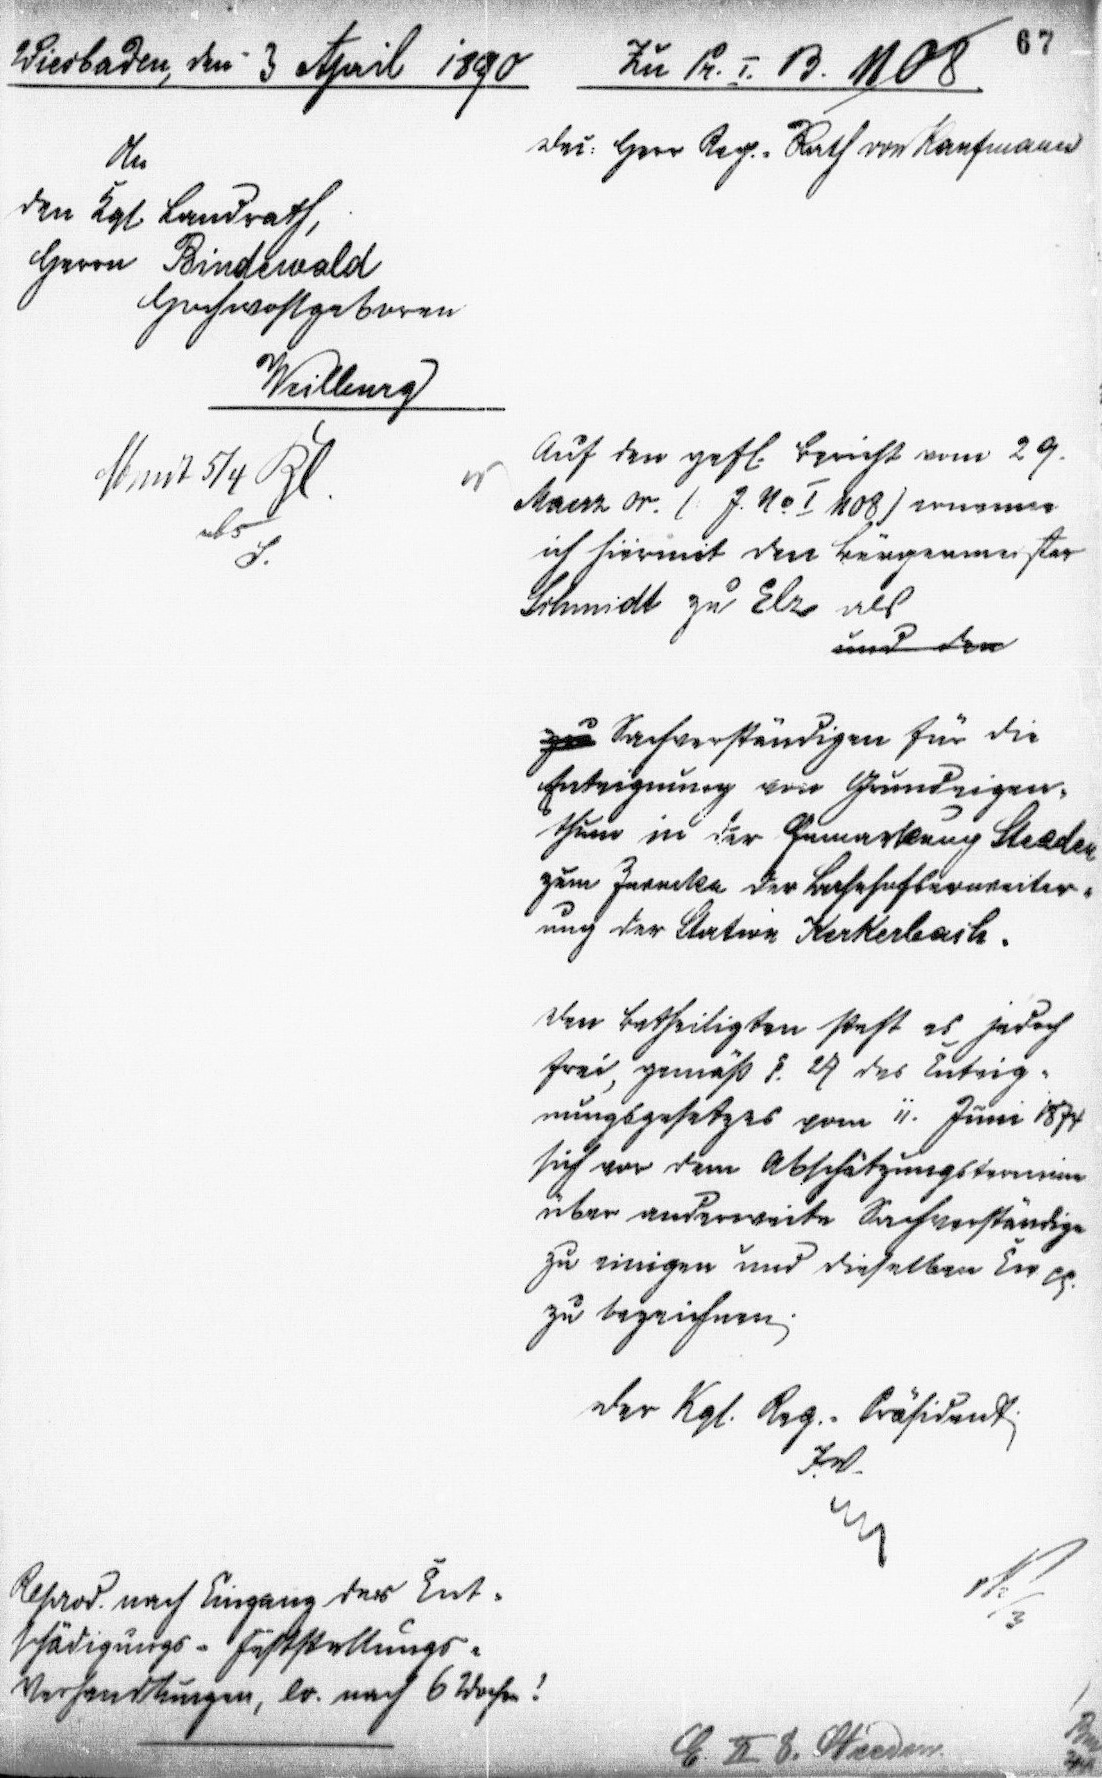 67
Wiesbaden, den 3 April 1890
Zu Pr. I. B. 1108
Dec: Herr Reg.-Rath von Kaufmann
An
den Kgl. Landrath,
Herrn Bindewald
Hochwohlgeboren
Weilburg
Auf den gefl. Bericht vom 29.
Maerz cr. (J. No I 1108) ernenne
ich hiermit den Bürgermeister
Schmidt zu Elz als
und den
zu Sachverständigen für die
Enteignung von Grundeigen-
thum in der Gemarkung Steeden
zum Zwecke der Bahnhofserweiter-
ung der Station Kerkerbach.
Den Betheiligten steht es jedoch
frei, gemäß §. 27 des Enteig-
nungsgesetzes vom 11. Juni 1874
sich vor dem Abschätzungstermine
über anderweite Sachverständige
zu einigen und dieselben Ew pp.
zu bezeichnen.
Der Kgl. Reg.-Präsident.
I.V.
Reprod. nach Eingang der Ent-
schädigungs-Feststellungs-
Verhandlungen, ev. nach 6 Wochen!
E. II 8. Steeden.